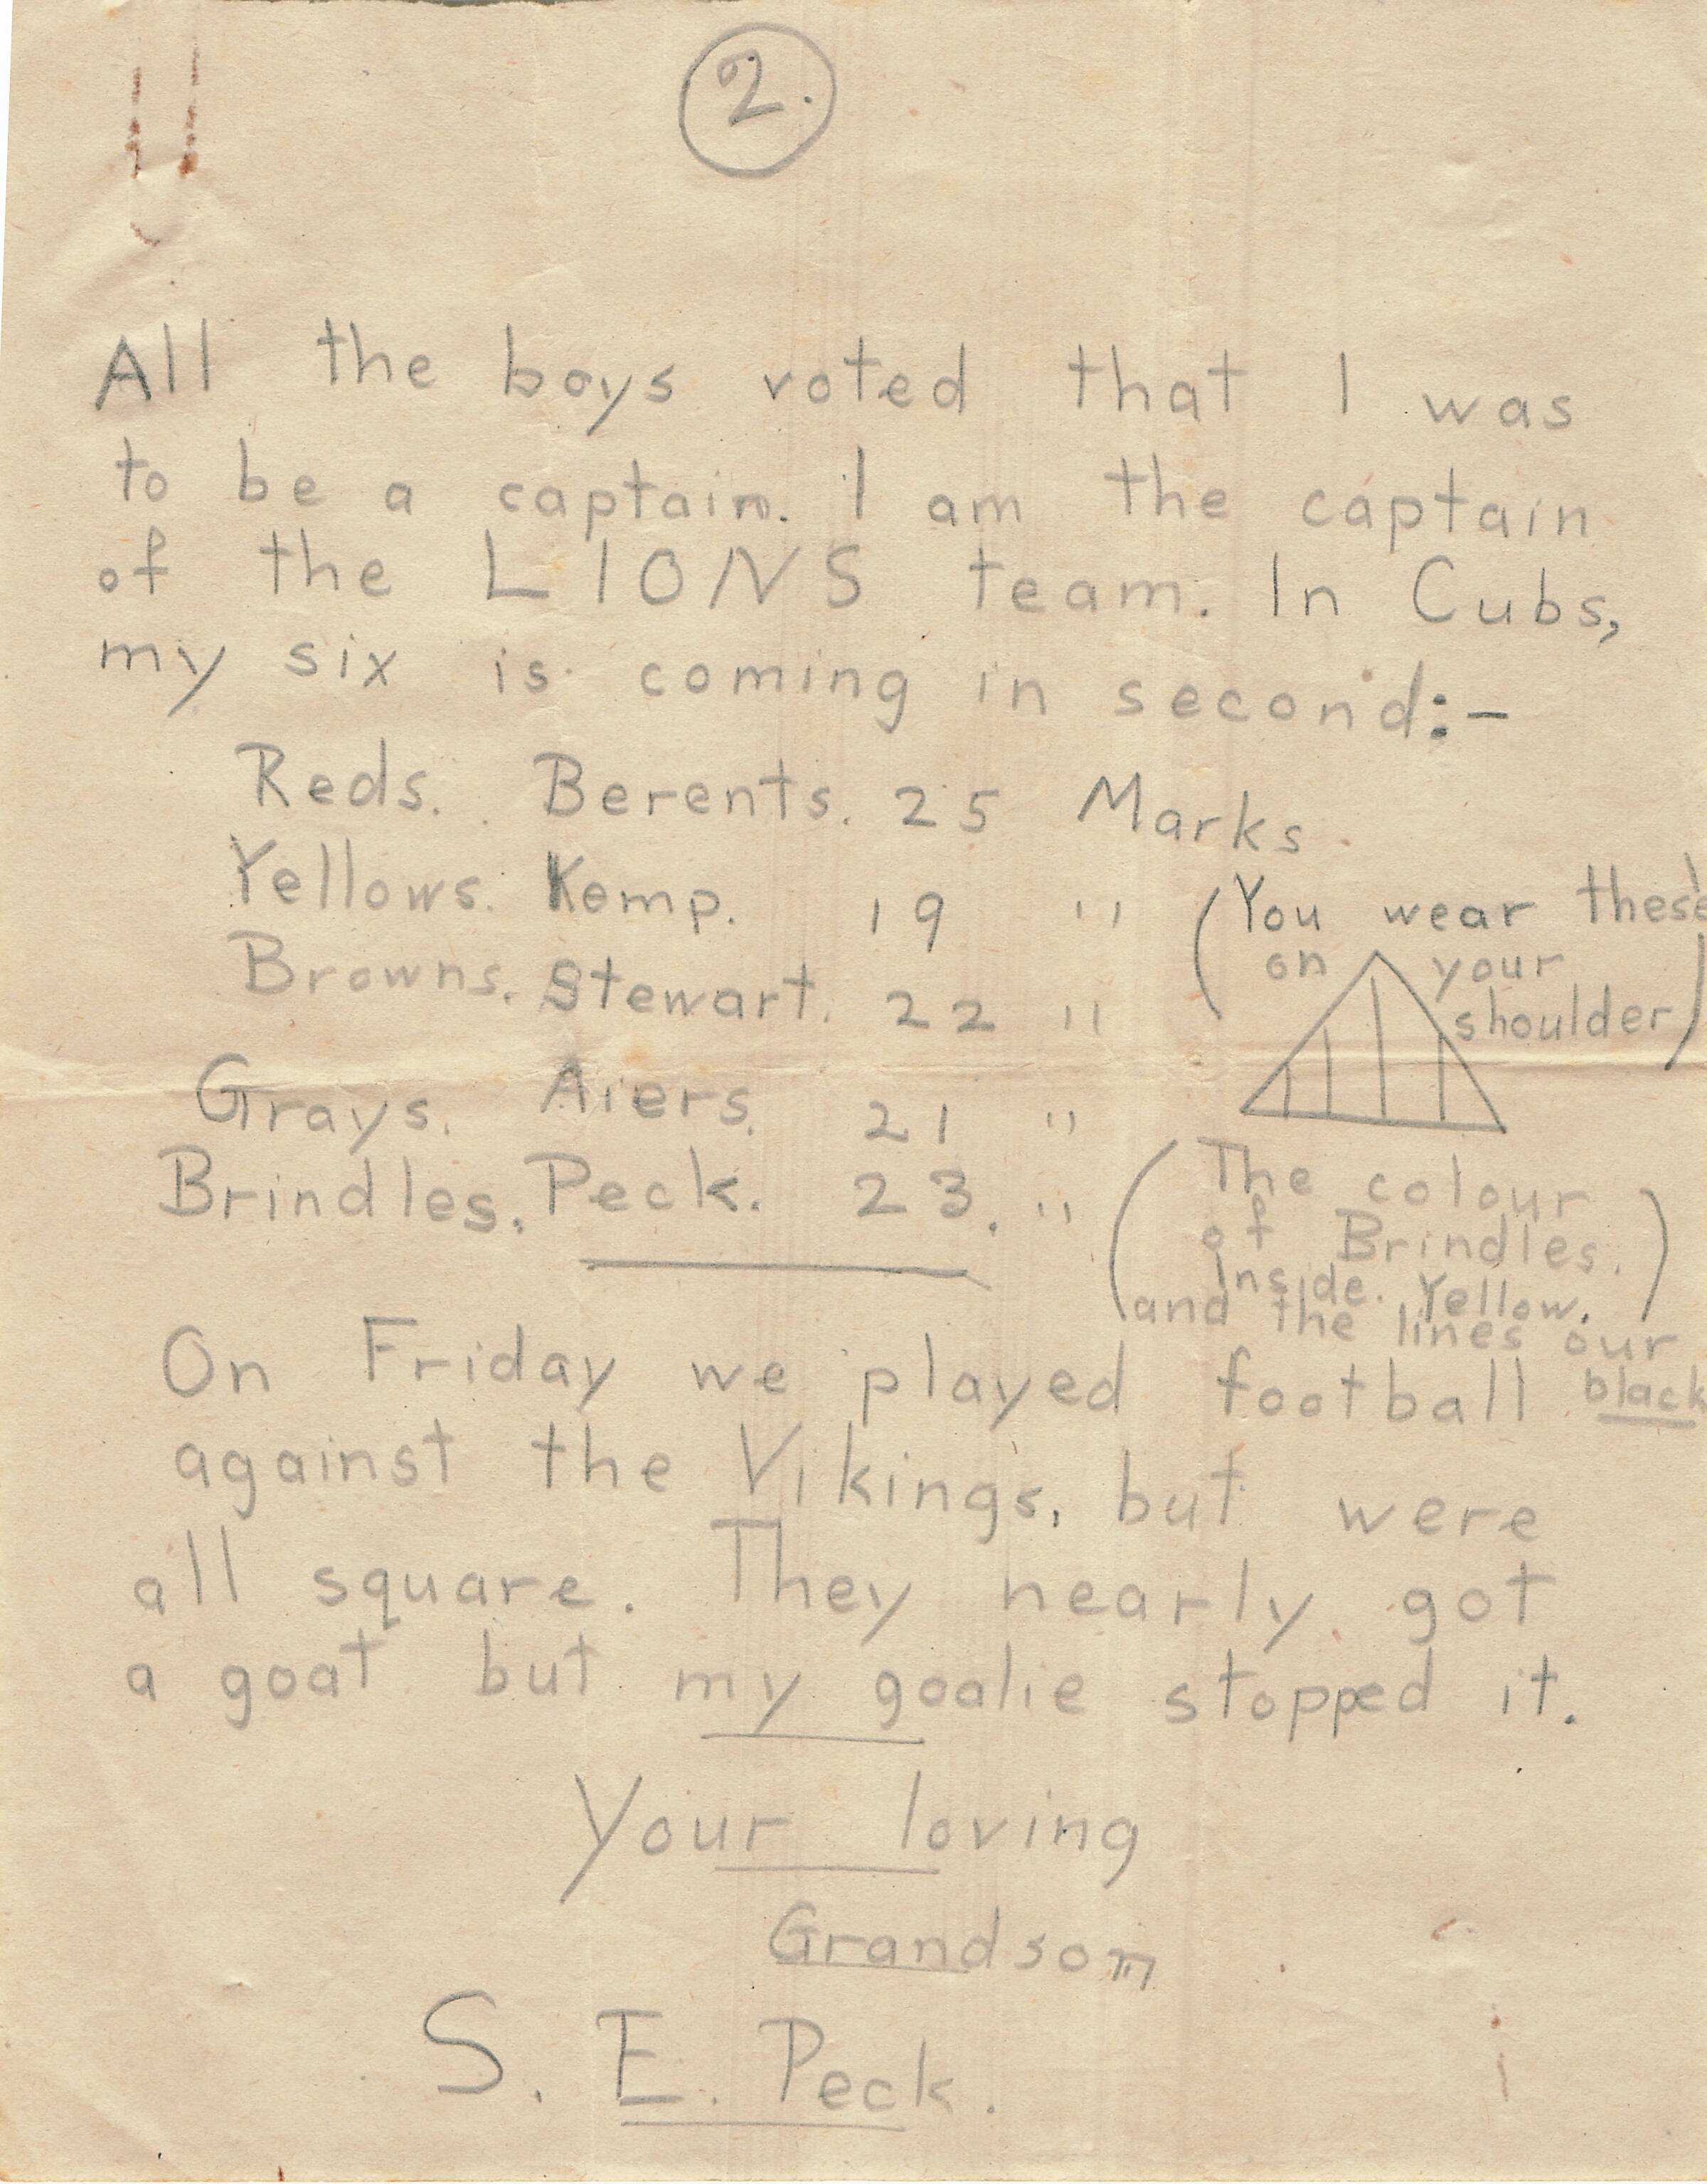 2.
All the boys voted that I was
to be a captain. I am the captain
of the LIONS team. In Cubs,
my six is coming in second:-
Reds. Berents. 25 Marks.
Yellows. Kemp. 19 "
Browns. Stewart. 22 "
Grays. Aiers. 21 "
Brindles. Peck. 23. "
(You wear these
on your
shoulder)
(The colour
of Brindles.
inside. Yellow.)
and the lines our
black
On Friday we played football
against the Vikings, but were
all square. They nearly got
a goat but my goalie stopped it.
Your loving
Grandson
S. E. Peck.